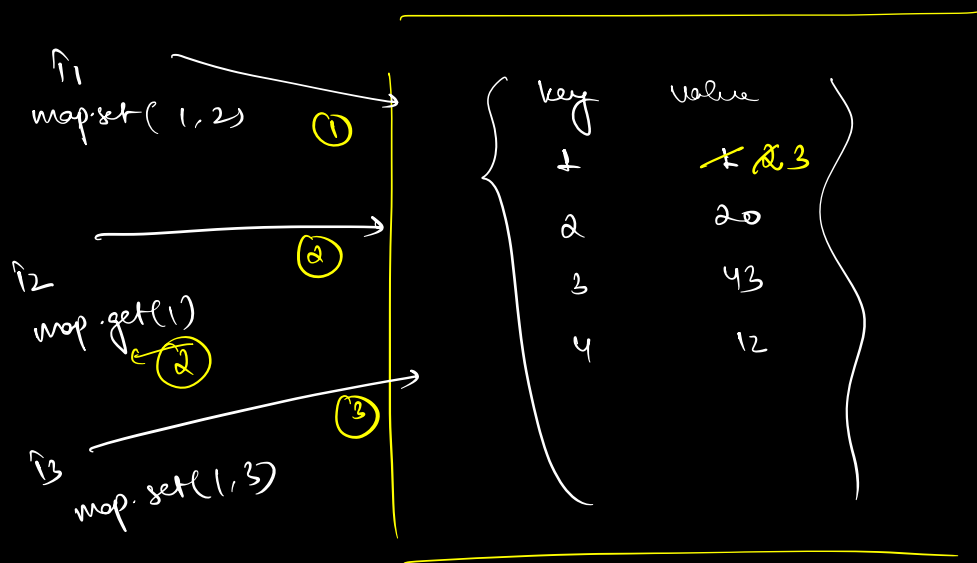 T1
map.set( 1,2)
①
②
T2
map.get(1)
②
③
T3
map.set(1,3)
key value
1 1 2 3
2 20
3 43
4 12